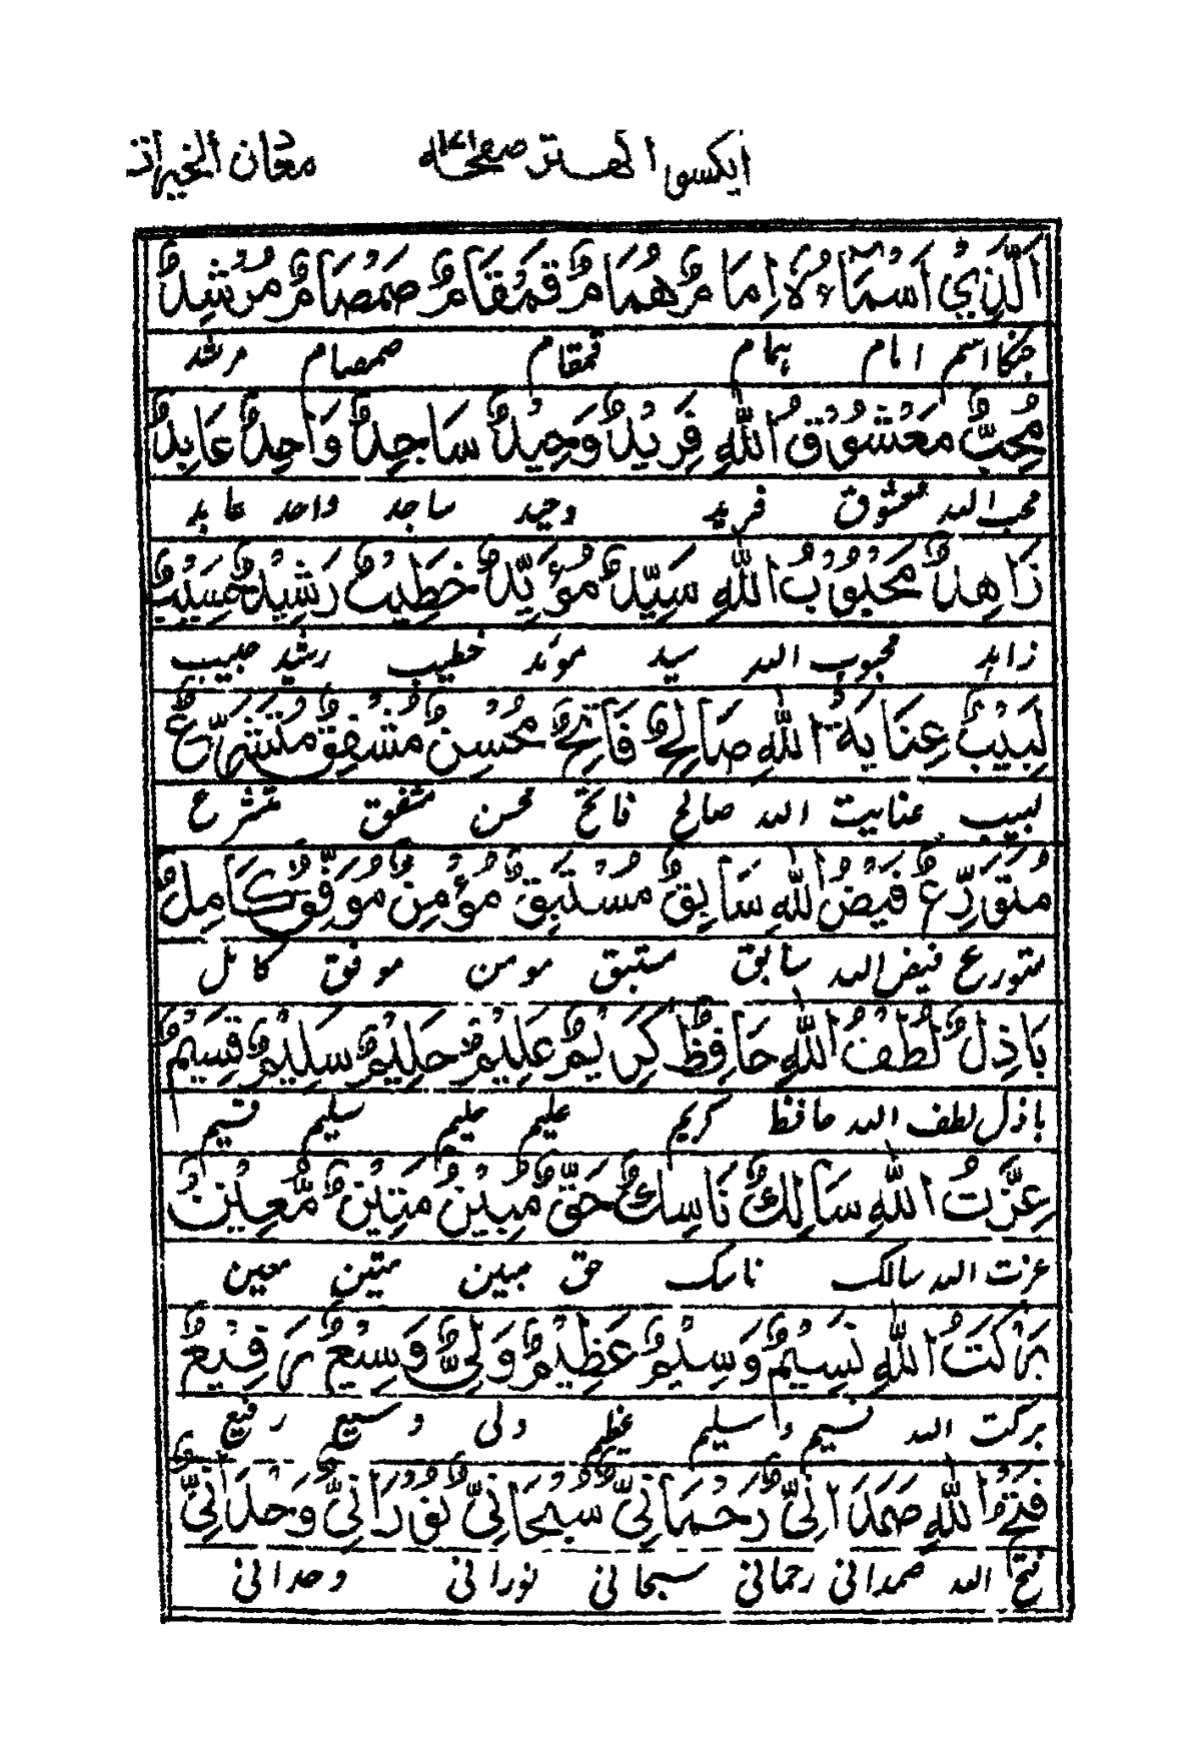 ایکسو الہستر صفحہ ۱۲۱ معان الخیرات
اَلَّذِيْ اَسْمَآءُهٗ اِمَامٌ هُمَامٌ قَمْقَامٌ صَمْصَامٌ مُرْشِدٌ
جنکا اسم امام ہمام قمقام صمصام مرشد
مُحِبٌّ مَعْشُوْقُ اللّٰهِ فَرِيْدٌ وَحِيْدٌ سَاجِدٌ وَاحِدٌ عَابِدٌ
محب اللہ معشوق فرید وحید ساجد واحد عابد
زَاهِدٌ مَحْبُوْبُ اللّٰهِ سَيِّدٌ مُؤَيِّدٌ خَطِيْبٌ رَشِيْدٌ حَسِيْبٌ
زاہد محبوب اللہ سید موئد خطیب رشید حبیب
لَبِيْبٌ عِنَايَةُ اللّٰهِ صَالِحٌ فَاتِحٌ مُحْسِنٌ مُشْفِقٌ مُتَشَرِّعٌ
لبیب عنایت اللہ صالح فاتح محسن مشفق متشرع
مُتَوَرِّعٌ فَيْضُ اللّٰهِ سَابِقٌ مُسْتَبِقٌ مُؤْمِنٌ مُوَفَّقٌ كَامِلٌ
متورع فیض اللہ سابق مستبق مومن موفق کامل
بَاذِلٌ لُطْفُ اللّٰهِ حَافِظٌ كَرِيْمٌ عَلِيْمٌ حَلِيْمٌ سَلِيْمٌ قَسِيْمٌ
باذل لطف اللہ حافظ کریم علیم حلیم سلیم قسیم
عِزَّتُ اللّٰهِ سَالِكٌ نَاسِكٌ حَقٌّ مُبِيْنٌ مَتِيْنٌ مُّعِيْنٌ
عزت اللہ سالک ناسک حق مبین متین معین
بَرَكَتُ اللّٰهِ نَسِيْمٌ وَسِيْمٌ عَظِيْمٌ وَلِيٌّ وَسِيْعٌ رَفِيْعٌ
برکت اللہ نسیم واسلیم عظیم ولی وسیع رفیع
فَتْحُ اللّٰهِ صَمَدَانِيٌّ رَحْمَانِيٌّ سُبْحَانِيٌّ نُوْرَانِيٌّ وَحْدَانِيٌّ
فتح اللہ صمدانی رحمانی سبحانی نورانی وحدانی